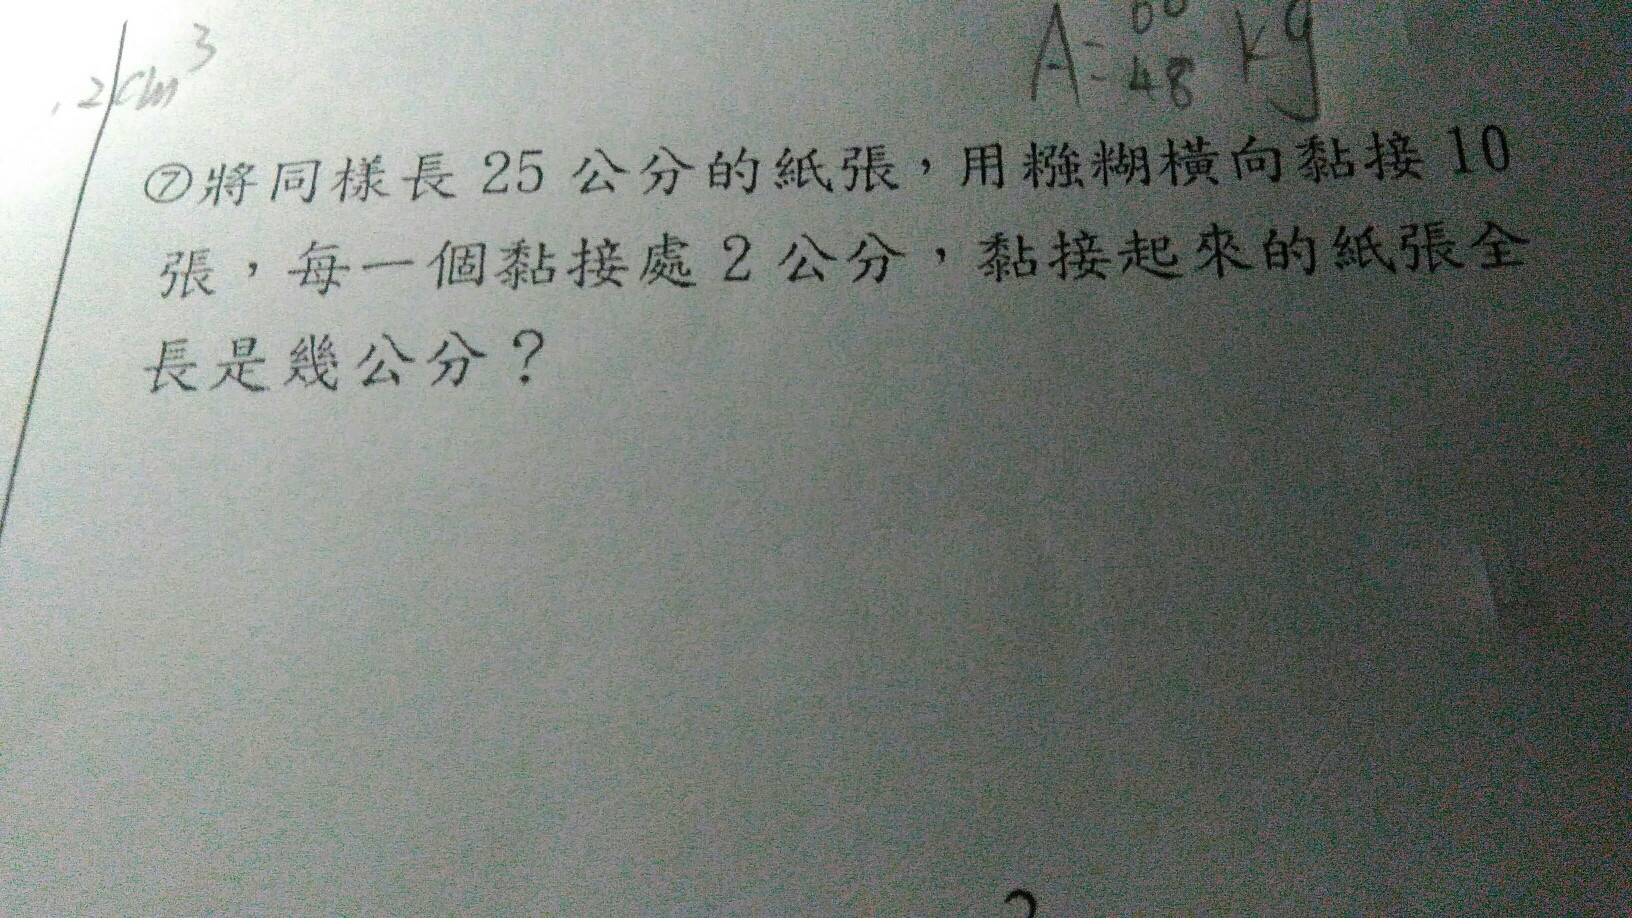 .2cm³
A=48 kg
⑦將同樣長 25 公分的紙張，用糨糊橫向黏接 10
張，每一個黏接處 2 公分，黏接起來的紙張全
長是幾公分？